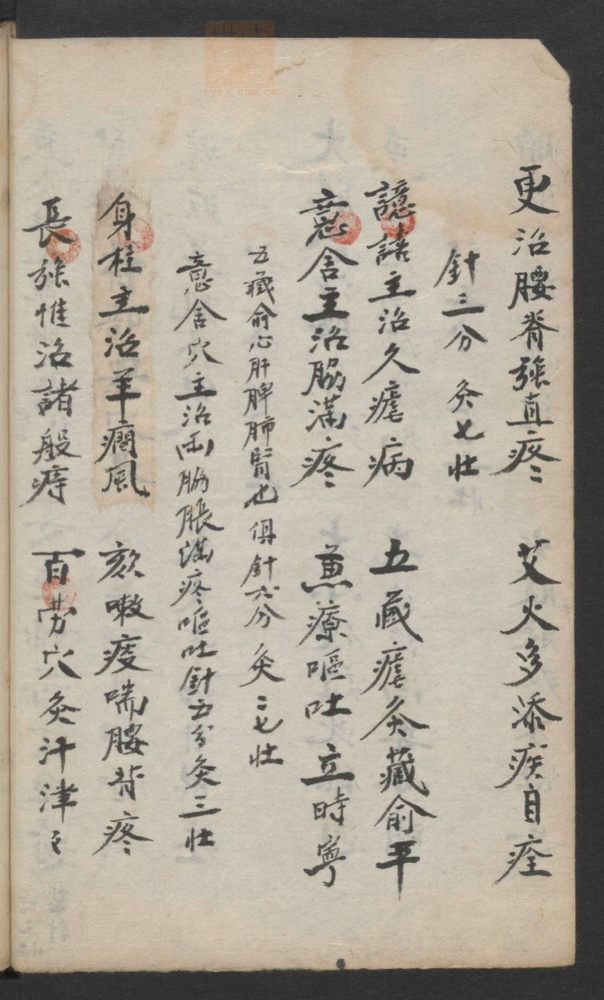 更治腰脊強直疼　艾火多添疾自痊
針三分　灸七壯
譩譆主治久瘧病　五臧瘧灸藏俞平
意舍主治脇滿疼　兼療嘔吐立時寧
五藏俞心肝脾肺腎也俱針六分灸二七壯
意舍穴主治両脇脹滿疼嘔吐針五分灸三壯
身柱主治羊癇風　欬嗽痰喘腰背疼
長強惟治諸般痔　百勞穴灸汗津〻